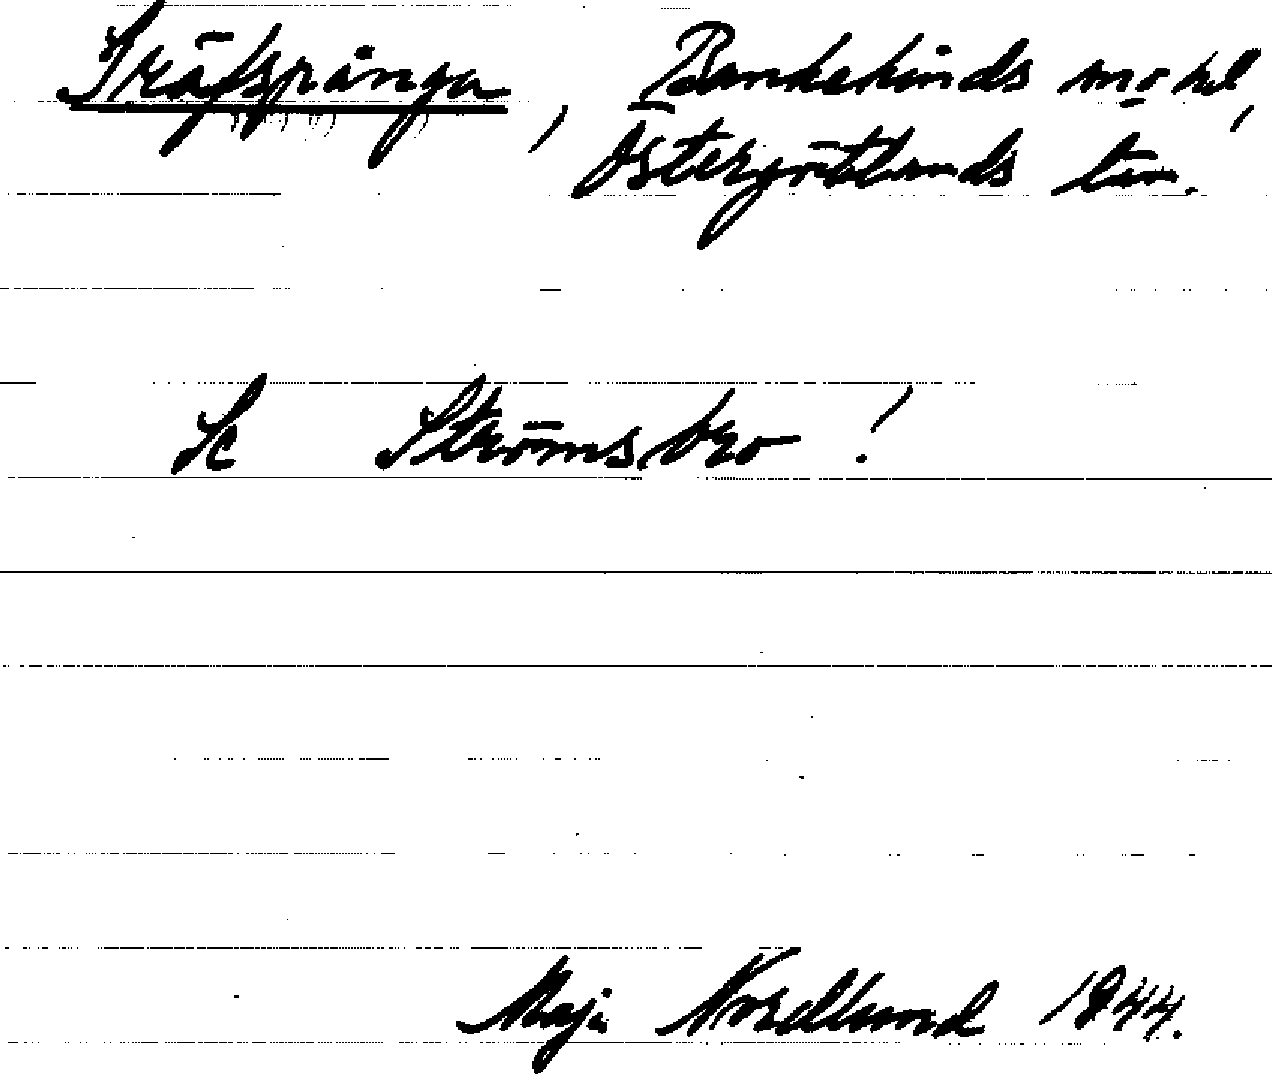 Träfspånga, Bankekinds m o hd,
Östergötlands län.
Se Strömsbro!
Maja Nordlund 1944.